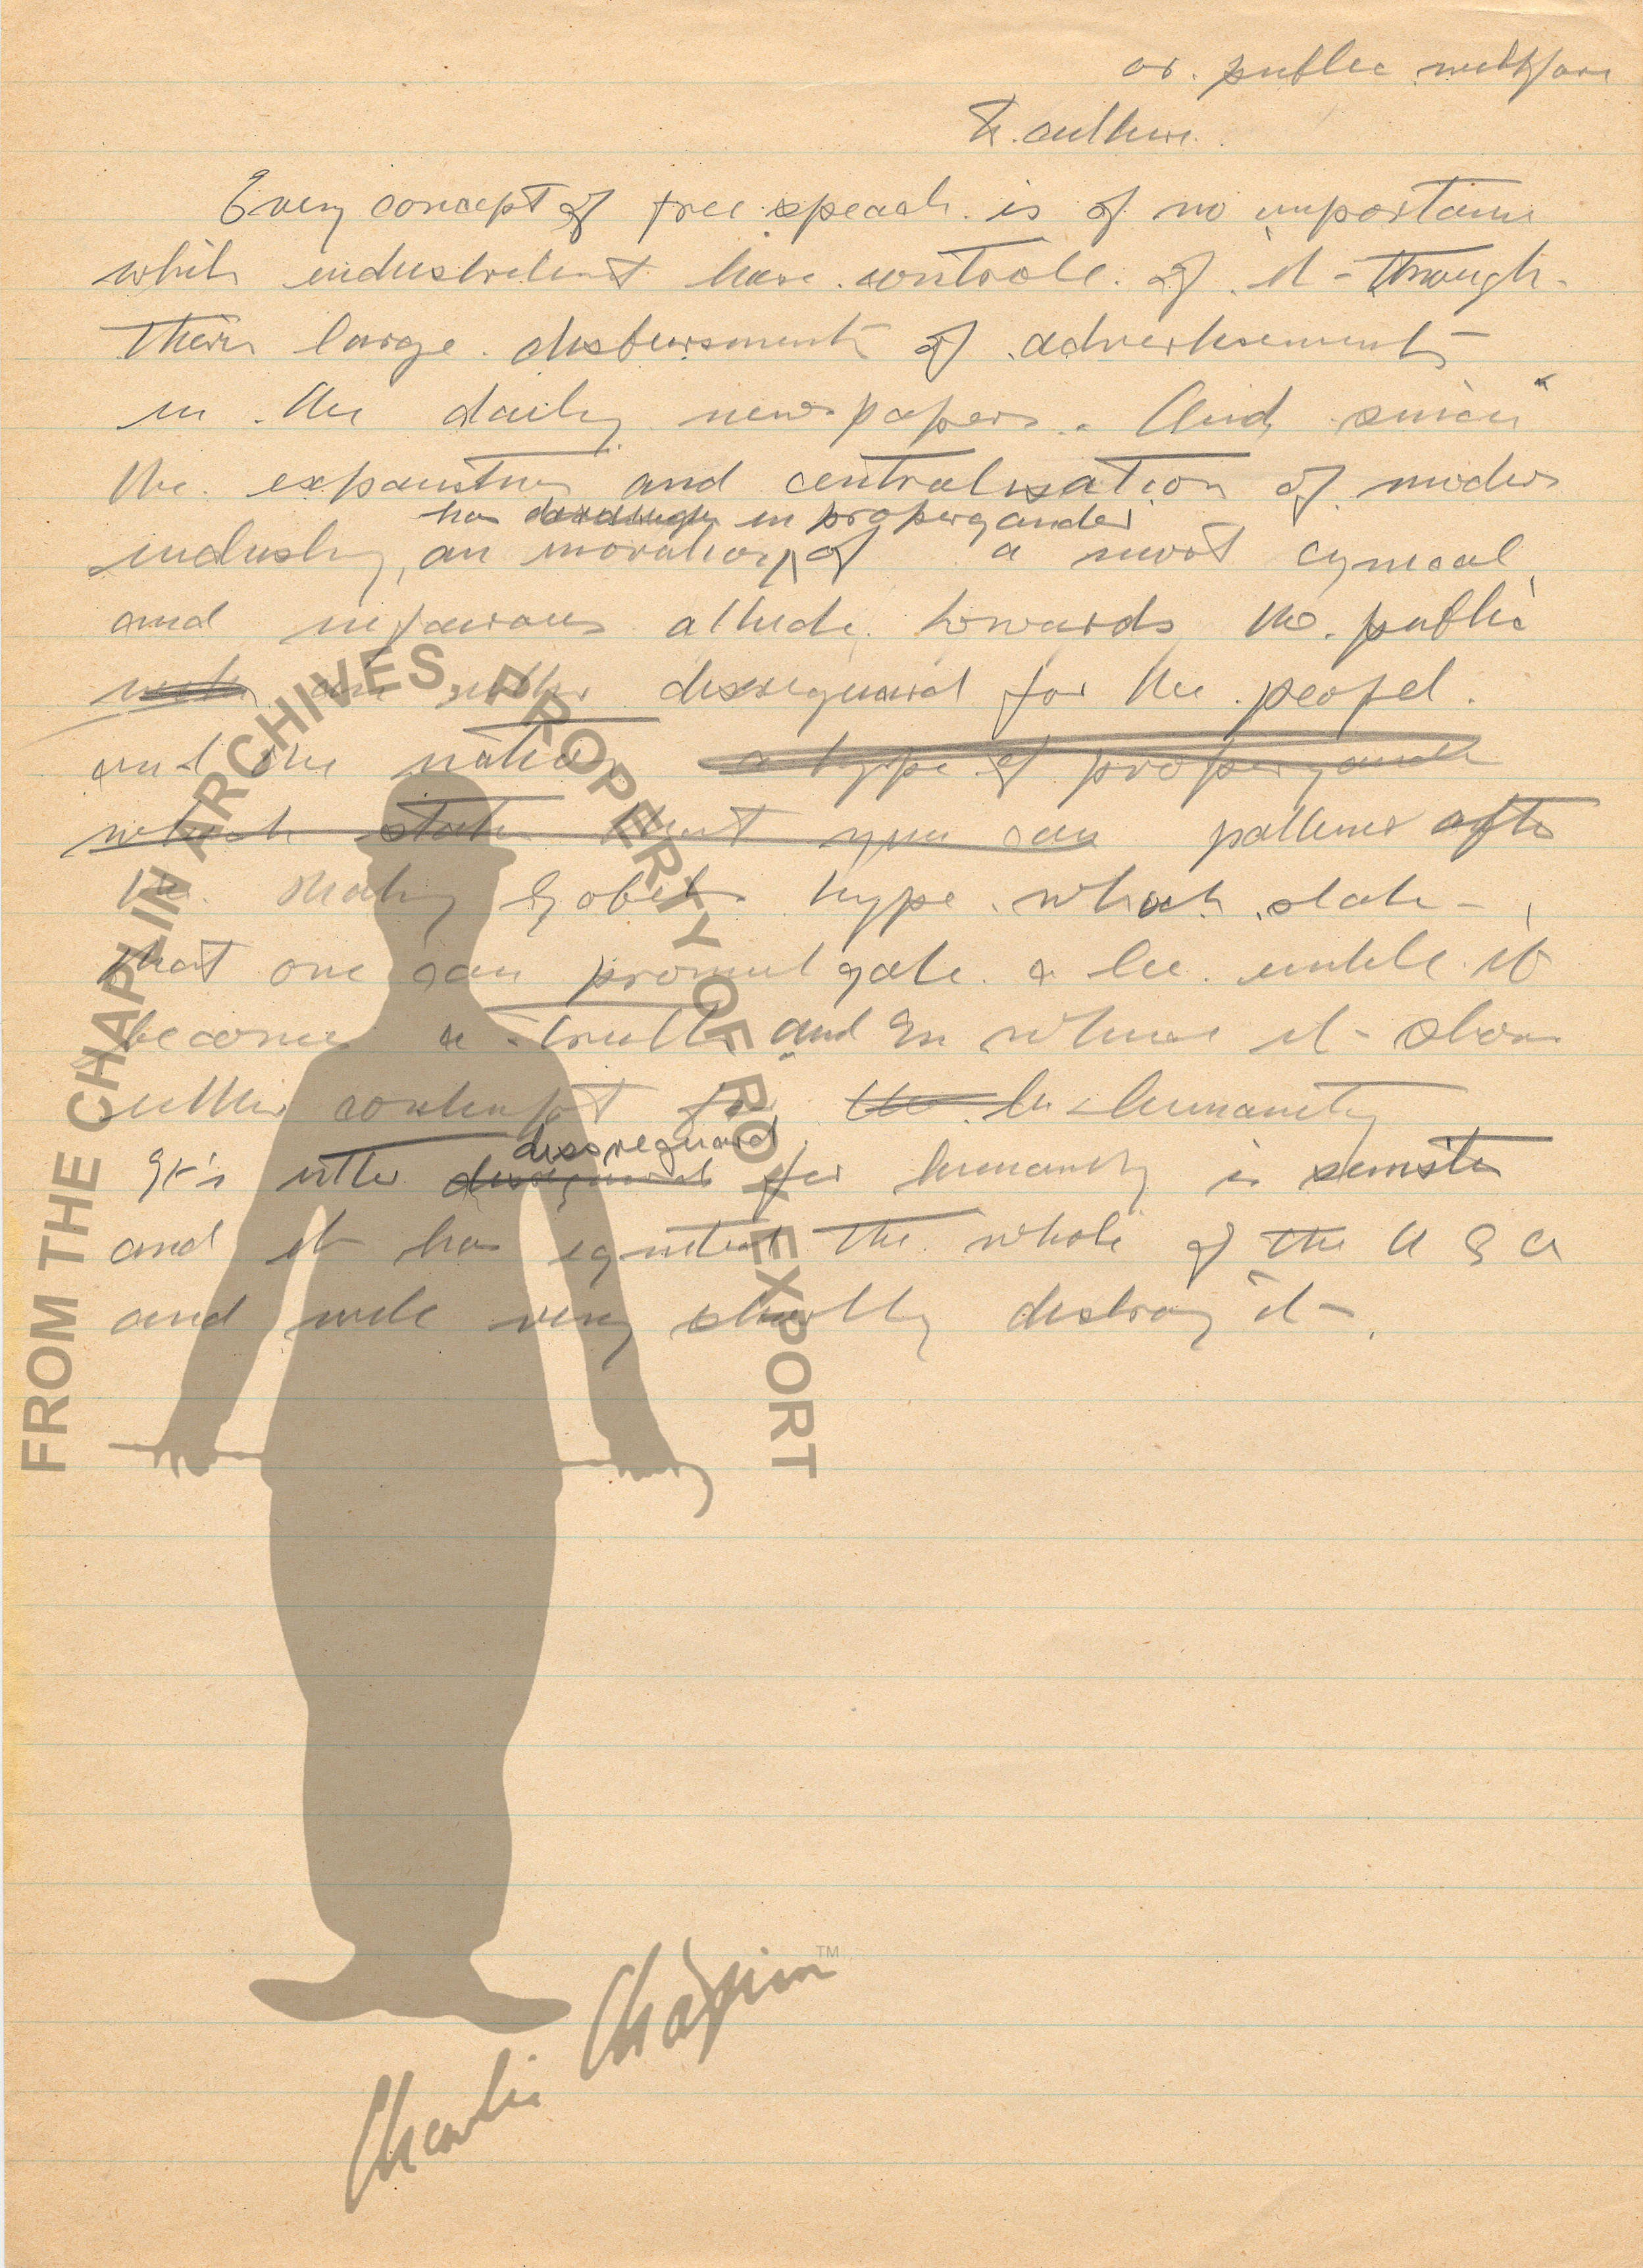 or public wellfare
& culture.
Every concept of free speach is of no importance
while industrelist have controle of it - through
their large disbursments of advertisements
in the daily newspapers. And since
the expanstion and centralisation of modern
has in propergander
industry, an inovation of a most cynical
and nefarious attitude towards the public
with an utter dissreguard for the peopel.
and the nation a type of properganda
which states that you can patterned after
the Gobels type which states
that one can promulgate a lie untill it
becomes a truth and in where it shows
utter contempt for the humanity
dissreguard
It's utter dissreguard for humanity is sinister
and it has ignited the whole of the U S A
and will very shortly destroy it.
FROM THE CHAPLIN ARCHIVES, PROPERTY OF ROY EXPORT
Charlie Chaplin™